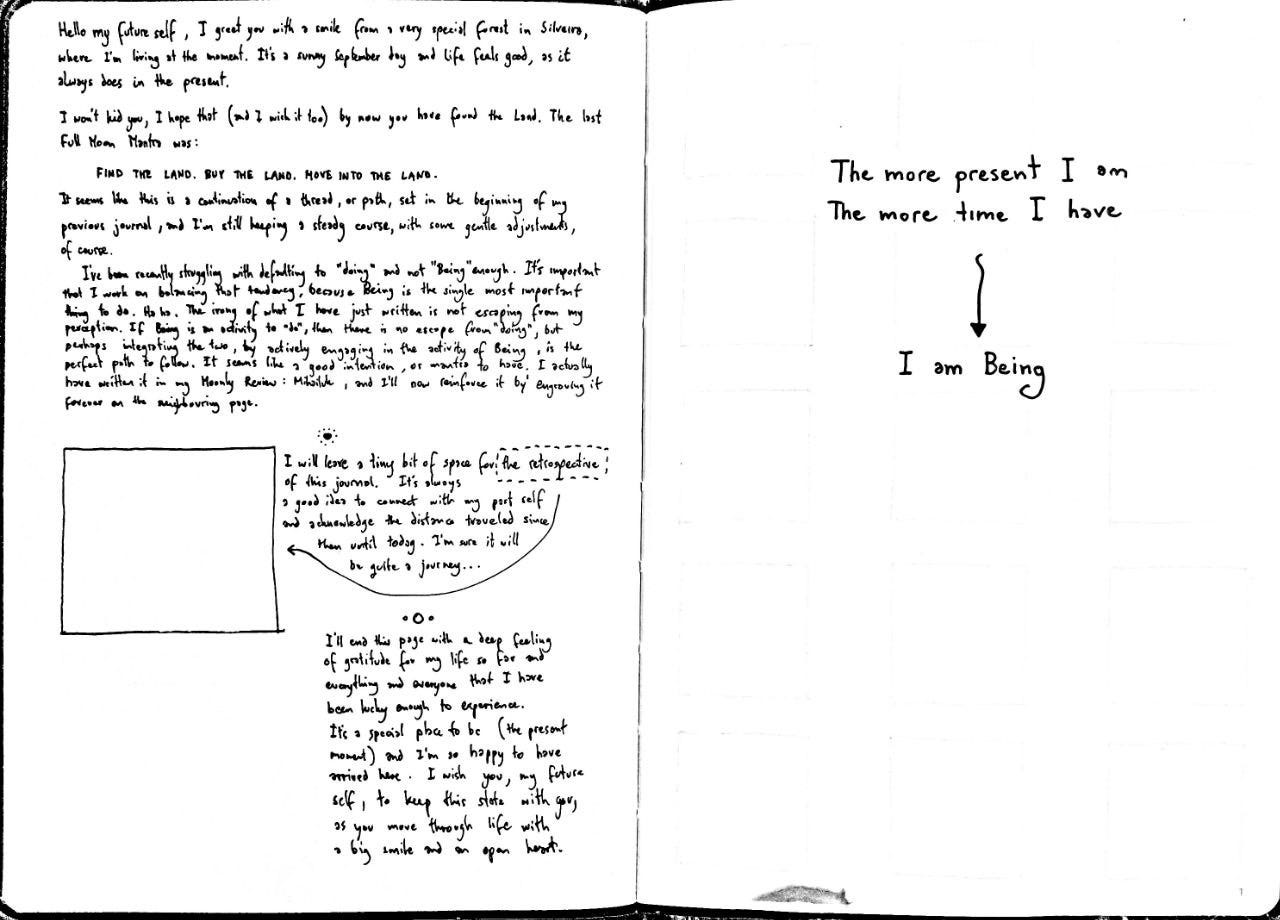 Hello my future self, I greet you with a smile from a very special forest in Silveira,
where I'm living at the moment. It's a sunny September day and life feels good, as it
always does in the present.
I won't kid you, I hope that (and I wish it too) by now you have found the Land. The last
Full Moon Mantra was:
FIND THE LAND. BUY THE LAND. MOVE INTO THE LAND.
It seems like this is a continuation of a thread, or path, set in the beginning of my
previous journal, and I'm still keeping a steady course, with some gentle adjustments,
of course.
I've been recently struggling with defaulting to "doing" and not "Being" enough. It's important
that I work on balancing that tendency, because Being is the single most important
thing to do. Ha ha. The irony of what I have just written is not escaping from my
perception. If Being is an activity to "do", then there is no escape from "doing", but
perhaps integrating the two, by actively engaging in the activity of Being, is the
perfect path to follow. It seems like a good intention, or mantra to have. I actually
have written it in my Moonly Review: , and I'll now reinforce it by engraving it
forever on the neighbouring page.
I will leave a tiny bit of space for the retrospective
of this journal. It's always
a good idea to connect with my past self
and acknowledge the distance traveled since
then until today. I'm sure it will
be quite a journey...
I'll end this page with a deep feeling
of gratitude for my life so far and
everything and everyone that I have
been lucky enough to experience.
It's a special place to be (the present
moment) and I'm so happy to have
arrived here. I wish you, my future
self, to keep this state with you,
as you move through life with
a big smile and an open heart.
The more present I am
The more time I have
I am Being
1